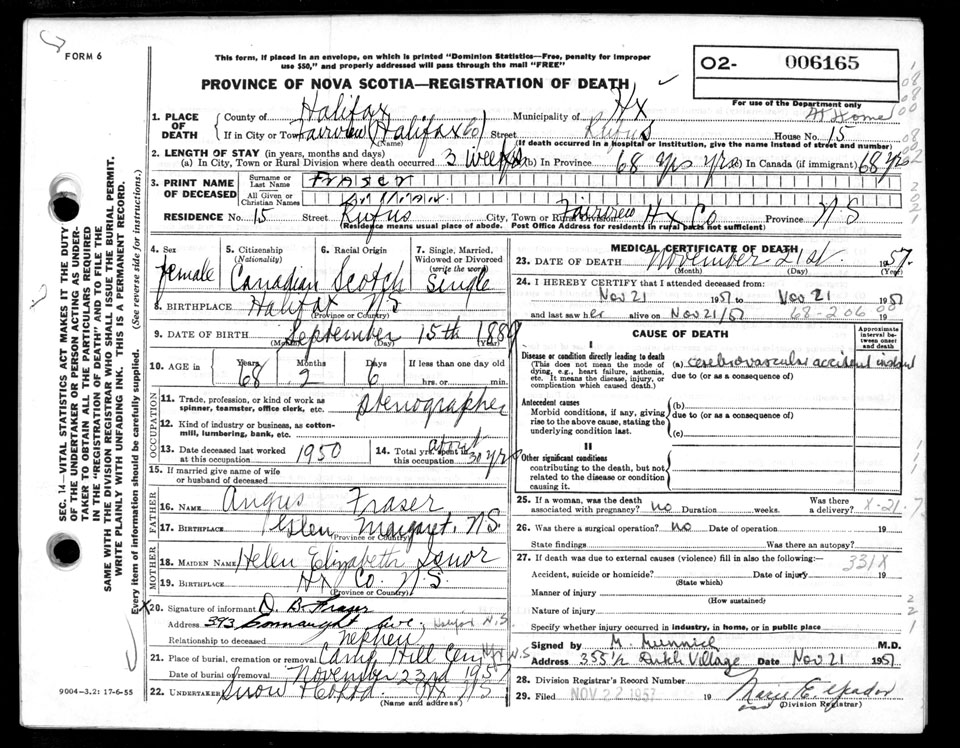 FORM 6
This form, if placed in an envelope, on which is printed "Dominion Statistics—Free, penalty for improper
use $50," and properly addressed will pass through the mail "FREE"
PROVINCE OF NOVA SCOTIA—REGISTRATION OF DEATH
O2- 006165
For use of the Department only
At Home
1. PLACE OF DEATH
County of Halifax Municipality of Hx
If in City or Town Fairview (Halifax Co) Street Rufus House No. 15
(Name) (If death occurred in a hospital or institution, give the name instead of street and number)
2. LENGTH OF STAY (in years, months and days)
(a) In City, Town or Rural Division where death occurred 3 weeks (b) In Province 68 yrs (c) In Canada (if immigrant) 68 yrs
3. PRINT NAME OF DECEASED
Surname or Last Name Fraser
All Given or Christian Names
RESIDENCE No. 15 Street Rufus City, Town or Rural Division Fairview Hx Co Province N S
(Residence means usual place of abode. Post Office Address for residents in rural parts not sufficient)
4. Sex female
5. Citizenship (Nationality) Canadian
6. Racial Origin Scotch
7. Single, Married, Widowed or Divorced (write the word) Single
8. BIRTHPLACE Halifax N S
(Province or Country)
9. DATE OF BIRTH September 15th 1889
(Month) (Day)
10. AGE in Years 68 Months 2 Days 6 If less than one day old
hrs. or min.
OCCUPATION
11. Trade, profession, or kind of work as
spinner, teamster, office clerk, etc. Stenographer
12. Kind of industry or business, as cotton-
mill, lumbering, bank, etc.
13. Date deceased last worked
at this occupation 1950
14. Total yrs. spent in
this occupation about 30 yrs
15. If married give name of wife
or husband of deceased
FATHER
16. NAME Angus Fraser
17. BIRTHPLACE Glen Margaret, N.S.
(Province or Country)
MOTHER
18. MAIDEN NAME Helen Elizabeth
19. BIRTHPLACE Hx Co. N.S.
(Province or Country)
20. Signature of informant D. B. Fraser
Address 393 Connaught Ave. Halifax N.S.
Relationship to deceased nephew
21. Place of burial, cremation or removal Camp Hill Cem Hfx N.S
Date of burial or removal November 23rd 1957
22. UNDERTAKER Snow & Co Ltd. Hx N S
(Name and address)
MEDICAL CERTIFICATE OF DEATH
23. DATE OF DEATH November 21st. 1957.
(Month) (Day) (Year)
24. I HEREBY CERTIFY that I attended deceased from:
Nov 21 1957 to Nov 21 1957
and last saw her alive on Nov 21/57 68-206 00
CAUSE OF DEATH
Approximate interval between onset and death
I
Disease or condition directly leading to death
(This does not mean the mode of
dying, e.g., heart failure, asthenia,
etc. It means the disease, injury, or
complication which caused death.)
(a) cerebrovascular accident instant
due to (or as a consequence of)
Antecedent causes
Morbid conditions, if any, giving
rise to the above cause, stating the
underlying condition last.
(b)
due to (or as a consequence of)
(c)
II
Other significant conditions
contributing to the death, but not
related to the disease or condition
causing it.
25. If a woman, was the death
associated with pregnancy? no Duration weeks. Was there a delivery? X-21.7
26. Was there a surgical operation? no Date of operation 19
State findings Was there an autopsy?
27. If death was due to external causes (violence) fill in also the following:—
331X
Accident, suicide or homicide? Date of injury 19
(State which)
Manner of injury
(How sustained)
Nature of injury
Specify whether injury occurred in industry, in home, or in public place
Signed by M. M.D.
Address 355 1/2 Dutch Village Date Nov 21 1957
28. Division Registrar's Record Number
29. Filed NOV 22 1957 19
(Division Registrar)
SEC. 14—VITAL STATISTICS ACT MAKES IT THE DUTY
OF THE UNDERTAKER OR PERSON ACTING AS UNDER-
TAKER TO OBTAIN ALL THE PARTICULARS REQUIRED
IN THE "REGISTRATION OF DEATH" AND TO FILE THE
SAME WITH THE DIVISION REGISTRAR WHO SHALL ISSUE THE BURIAL PERMIT.
WRITE PLAINLY WITH UNFADING INK. THIS IS A PERMANENT RECORD.
Every item of information should be carefully supplied. (See reverse side for instructions.)
9004-3.2: 17-6-55